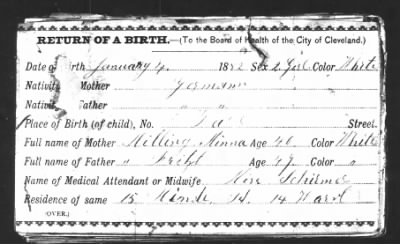 RETURN OF A BIRTH.—(To the Board of Health of the City of Cleveland.)
Date of Birth January 4. 1882 Sex Girl Color White
Nativity Mother Germany
Nativity Father " "
Place of Birth (of child), No. Street.
Full name of Mother Hilling Minna Age 40 Color White
Full name of Father " Age 49 Color "
Name of Medical Attendant or Midwife Mrs. Schirmer
Residence of same 15 St. 14 Ward
(OVER.)